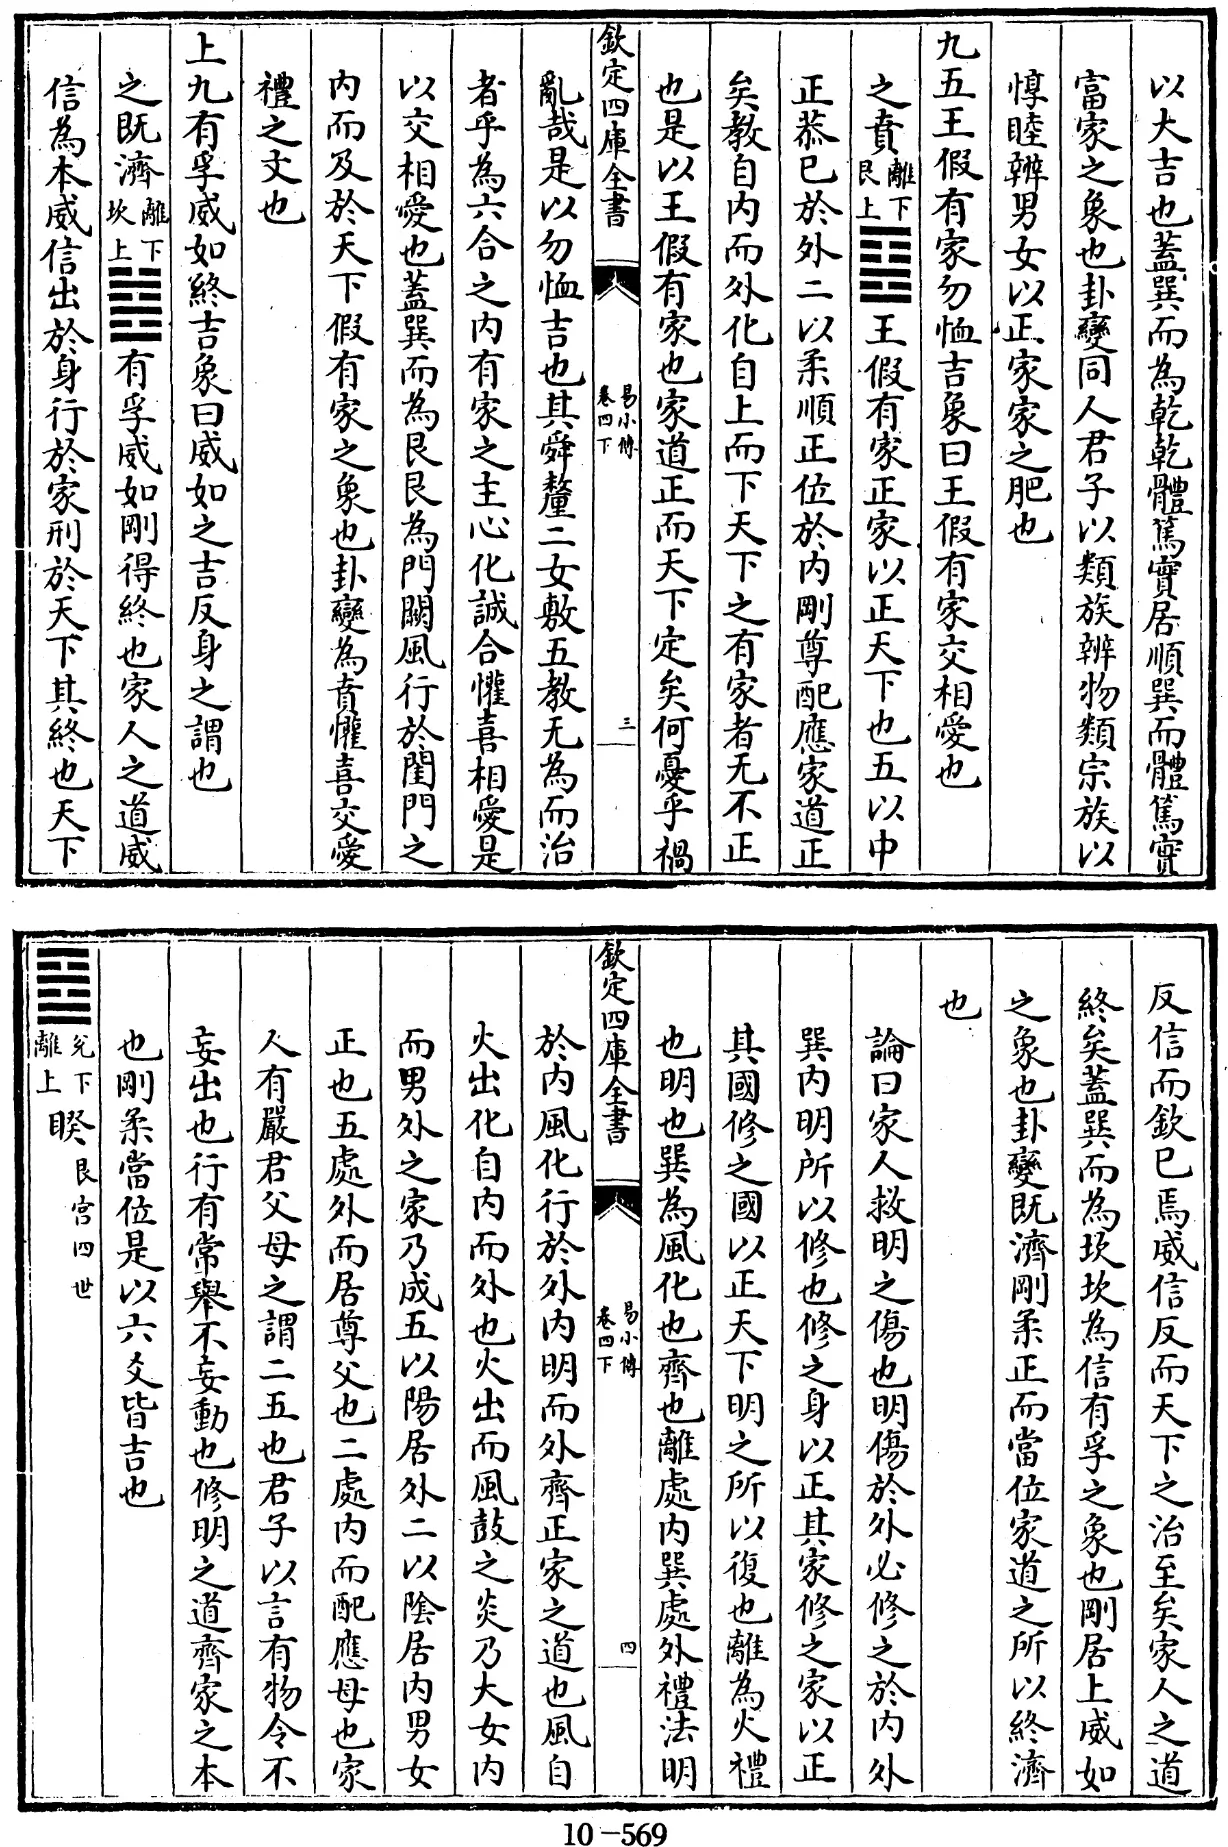 以大吉也蓋巽而為乾乾體篤實居順巽而體篤實
富家之象也卦變同人君子以類族辨物類宗族以
惇睦辨男女以正家家之肥也
九五王假有家勿恤吉象曰王假有家交相愛也
之賁離下艮上䷕王假有家正家以正天下也五以中
正恭已於外二以柔順正位於内剛尊配應家道正
矣教自内而外化自上而下天下之有家者无不正
也是以王假有家也家道正而天下定矣何憂乎禍
欽定四庫全書
易小傳
卷四下
三
亂哉是以勿恤吉也其舜釐二女敷五教无為而治
者乎為六合之内有家之主心化誠合懽喜相愛是
以交相愛也蓋巽而為艮艮為門闕風行於閨門之
内而及於天下假有家之象也卦變為賁懽喜交愛
禮之文也
上九有孚威如終吉象曰威如之吉反身之謂也
之既濟離下坎上䷾有孚威如剛得終也家人之道威
信為本威信出於身行於家刑於天下其終也天下
反信而欽已焉威信反而天下之治至矣家人之道
終矣蓋巽而為坎坎為信有孚之象也剛居上威如
之象也卦變既濟剛柔正而當位家道之所以終濟
也
論曰家人救明之傷也明傷於外必修之於内外
巽内明所以修也修之身以正其家修之家以正
其國修之國以正天下明之所以復也離為火禮
也明也巽為風化也齊也離處内巽處外禮法明
欽定四庫全書
易小傳
卷四下
四
於内風化行於外内明而外齊正家之道也風自
火出化自内而外也火出而風鼓之炎乃大女内
而男外之家乃成五以陽居外二以陰居内男女
正也五處外而居尊父也二處内而配應母也家
人有嚴君父母之謂二五也君子以言有物令不
妄出也行有常舉不妄動也修明之道齊家之本
也剛柔當位是以六爻皆吉也
䷥兌下離上睽艮宫四世
10-569